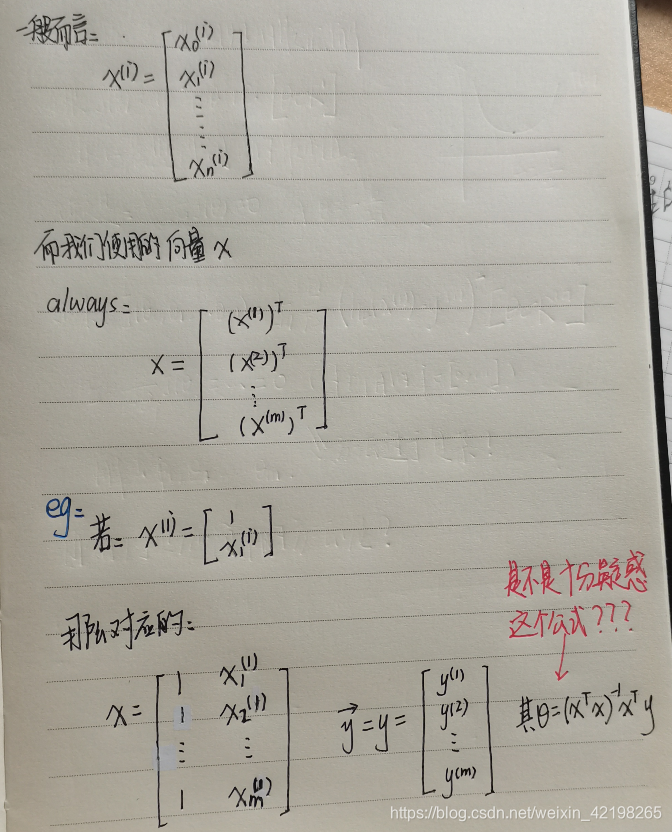 一般而言:
x^(i) = [ x₀^(i)
x₁^(i)
⋮
xₙ^(i) ]
而我们使用的向量 x
always:
x = [ (x^(1))^T
(x^(2))^T
⋮
(x^(m))^T ]
eg: 若: x^(i) = [ 1
x₁^(i) ]
是不是十分疑惑
这个公式???
那么对应的:
x = [ 1 x₁^(1)
1 x₂^(1)
⋮ ⋮
1 xₘ^(1) ]
y⃗ = y = [ y^(1)
y^(2)
⋮
y^(m) ]
其θ=(x^T x)^-1 x^T y
https://blog.csdn.net/weixin_42198265